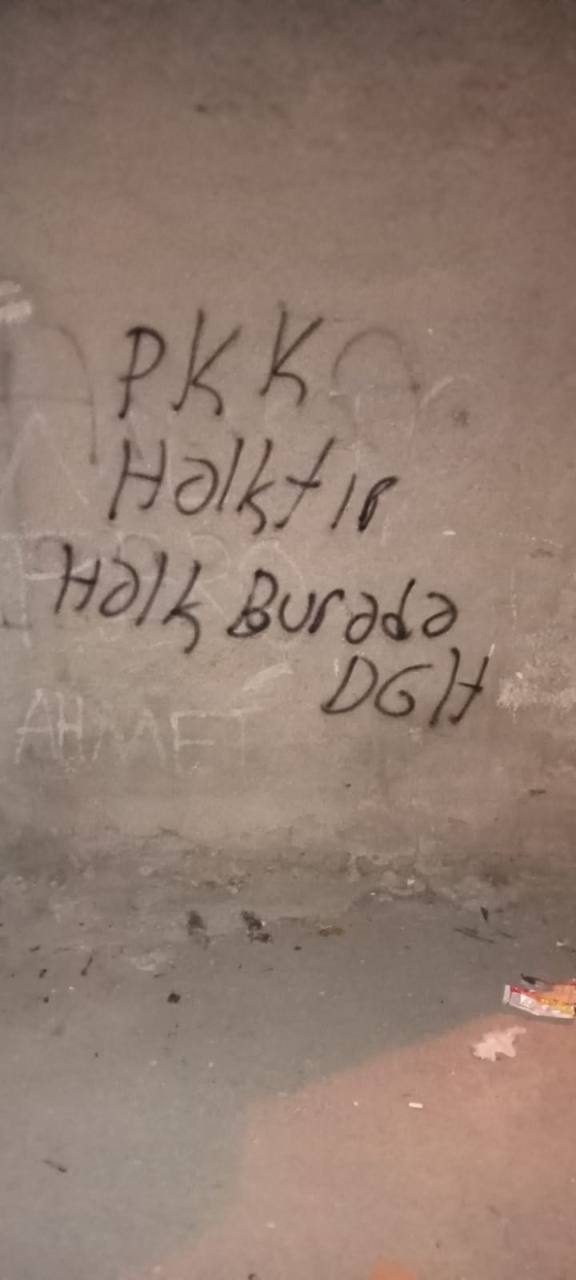 PKK
Halktır
Halk Burada
DGH
AHMET